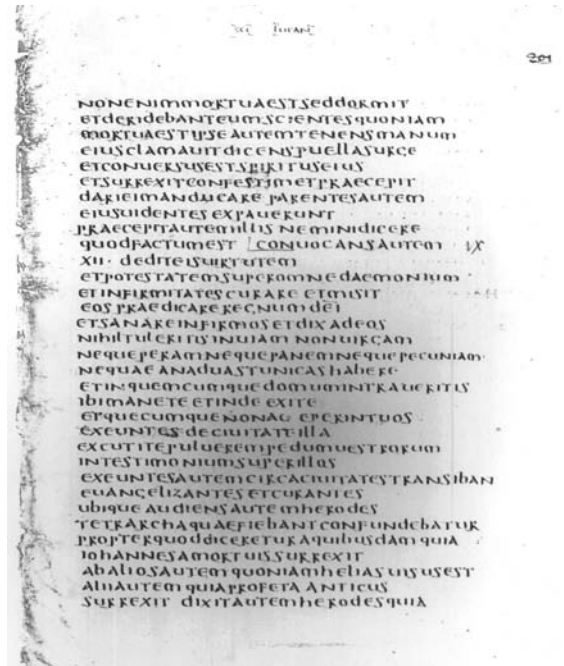 SEC LUCAN
201
NONENIMMORTUAESTSEDDORMIT
ETDERIDEBANTEUMSCIENTESQUONIAM
MORTUAESTIPSEAUTEMTENENSMANUM
EIUSCLAMAUITDICENSPUELLASURGE
ETCONUERSUSESTSPIRITUSEIUS
ETSURREXITCONFESTIMETPRAECEPIT
DARIEIMANDUCARE PARENTESAUTEM
EIUSUIDENTESEXPAUERUNT
PRAECEPITAUTEMILLIS NEMINIDICERE
QUODFACTUMEST CONUOCANSAUTEM IX
XII · DEDITEISUIRTUTEM
ETPOTESTATEMSUPEROMNEDAEMONIUM
ETINFIRMITATESCURARE ETMISIT
EOSPRAEDICAREREGNUMDEI
ETSANAREINFIRMOSETDIXADEOS
NIHILTULERITISINUIAM NONUIRGAM
NEQUEPERAMNEQUEPANEMNEQUEPECUNIAM
NEQUAEANADUASTUNICASHABERE
ETINQUEMCUMQUEDOMUMINTRAUERITIS
IBIMANETEETINDE EXITE
ETQUECUMQUENONAC EPERINTUOS
EXEUNTESDECIUITATEILLA
EXCUTITEPULUEREMPEDUMUESTRORUM
INTESTIMONIUMSUPERILLOS
EXEUNTESAUTEMCIRCACIUITATESTRANSIBAN
EUANGELIZANTESETCURANTES
UBIQUE AUDIENSAUTEMHERODES
TETRARCHAQUAEFIEBANTCONFUNDEBATUR
PROPTERQUODDICERETURAQUIBUSDAMQUIA
IOHANNESAMORTUISSURREXIT
ABALIOSAUTEMQUONIAMHELIASUISUSEST
ALIIAUTEMQUIAPROFETAANTICUS
SURREXIT DIXITAUTEMHERODESQUIA